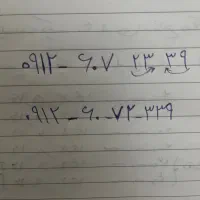 ۰۹۱۲ - ۶۰۷ ۲۳ ۳۹
۰۹۱۲ - ۶۰ - ۷۲ - ۳۳۹